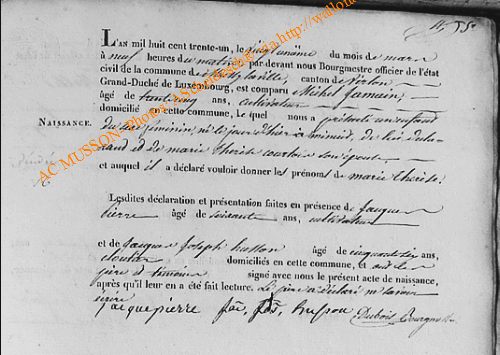 4, 55
L'AN mil huit cent trente-un, le vingt unième du mois de mars
à neuf heures du matin par devant nous Bourgmestre officier de l'état
civil de la commune de canton de Virton
Grand-Duché de Luxembourg, est comparu Michel Jamain,
âgé de trente cinq ans, cultivateur
domicilié cette commune, le quel nous a présenté un enfant
Naissance.
du sexe féminin, né le jour d'hier à minuit, de lui décla-
rant et de marie therese son épouse
et auquel il a déclaré vouloir donner les prénoms de marie therese.
Lesdites déclaration et présentation faites en présence de Jacques
pierre âgé de soixante ans, cultivateur
et de Jacques Joseph husson âgé de cinquante six ans,
cloutier domiciliés en cette commune, et ont le
père et témoins signé avec le nouveau présent acte de naissance,
après qu'il leur en a été fait lecture. Le père a déclaré ne savoir
écrire
jacque pierre husson Dubois Bourgmestre
AC MUSSON-Photo http://wallo